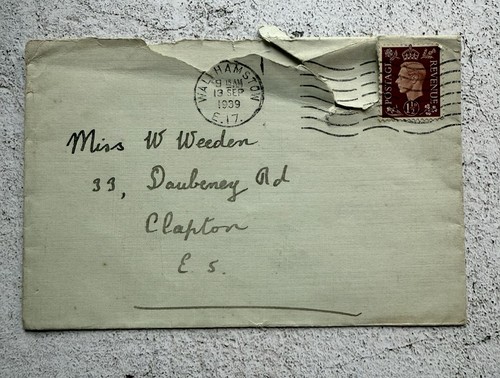 WALTHAMSTOW
9 15 AM
13 SEP
1939
E.17.
POSTAGE
REVENUE
1½D
Miss W Weeden
33, Daubeney Rd
Clapton
E 5.